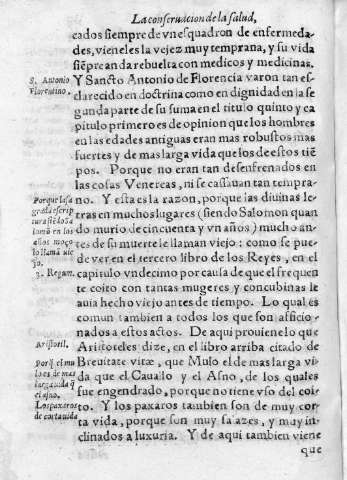 La conseruacion de la salud,
cados siempre de vn esquadron de enfermeda-
des, vieneles la vejez muy temprana, y su vida
siẽpre anda rebuelta con medicos y medicinas.
S. Antonio
Florentino.
Y Sancto Antonio de Florencia varon tan es-
clarecido en doctrina como en dignidad en la se
gunda parte de su suma en el titulo quinto y ca
pitulo primero es de opinion que los hombres
en las edades antiguas eran mas robustos mas
fuertes y de mas larga vida que los de estos tiẽ
pos. Porque no eran tan desenfrenados en
las cosas Venereas, ni se casauan tan tempra-
Porque la sa
grada escrip
tura siẽdo Sa
lomõ en los
años moço
lo llama vie
jo.
3. Regum.
no. Y esta es la razon, porque las diuinas le-
tras en muchos lugares (siendo Salomon quan
do murio de cincuenta y vn años) mucho an-
tes de su muerte le llaman viejo: como se pue-
de ver en el tercero libro de los Reyes, en el
capitulo vndecimo por causa de que el frequen
te coito con tantas mugeres y concubinas le
auia hecho viejo antes de tiempo. Lo qual es
comun tambien a todos los que son afficio-
nados a estos actos. De aqui prouiene lo que
Aristotil.
Porq̃ el mu
lo es de mas
larga vida q̃
el asno.
Los paxaros
de corta vida
Aristoteles dize, en el libro arriba citado de
Breuitate vitæ, que Mulo el de mas larga vi
da que el Cauallo y el Asno, de los quales
fue engendrado, porque no tiene vso del coi-
to. Y los paxaros tambien son de muy cor-
ta vida, porque son muy salazes, y muy in-
clinados a luxuria. Y de aqui tambien viene
que